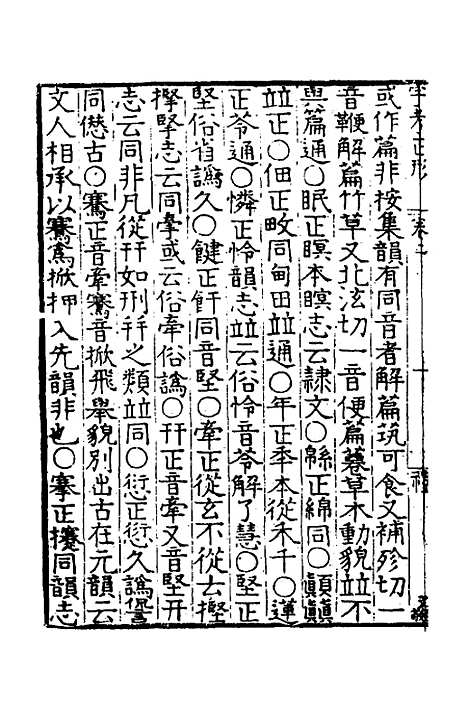 字考正形 卷二 十 禮
或作篇非按集韻有同音者解篇筑可食又補殄切一
音鞭解篇竹草又北泫切一音便篇藊草木動貌並不
與篇通○眠正瞑本瞑志云隸文○緜正綿同○顚顛
竝正○佃正畋同甸田竝通○年正秊本從禾千○蓮
正苓通○憐正怜韻志竝云俗怜音苓解了慧○堅正
堅俗省譌久○饘正飦同音堅○牽正從玄不從去摼
掔堅志云同牽或云俗牽俗譌○幵正音牽又音堅幵
志云同非凡從幵如刑并之類竝同○衍正愆久譌
同僁古○騫正音牽鶱音掀飛舉貌別出古在元韻云
文人相承以騫鶱掀押入先韻非也○搴正攓同韻志